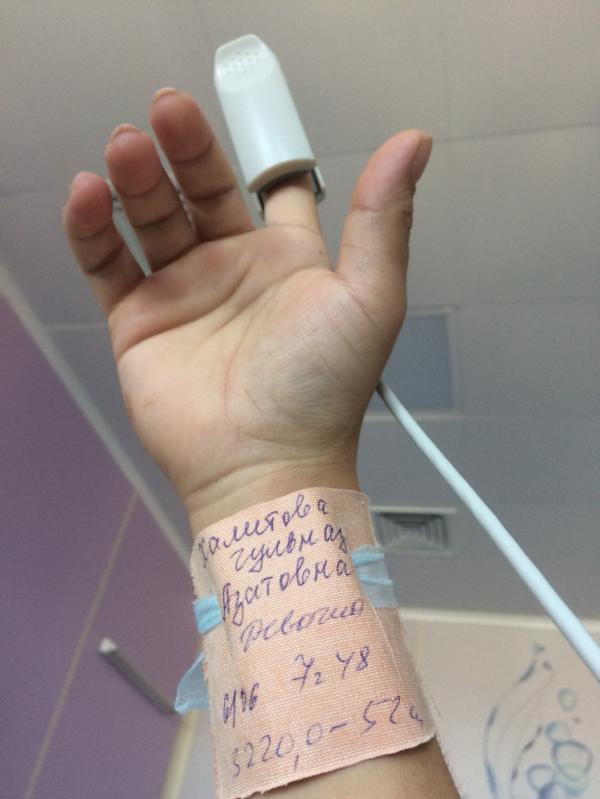 Халитова
гульназ
Азатовна
девочка
6/06 7 2 48
3220,0 - 52